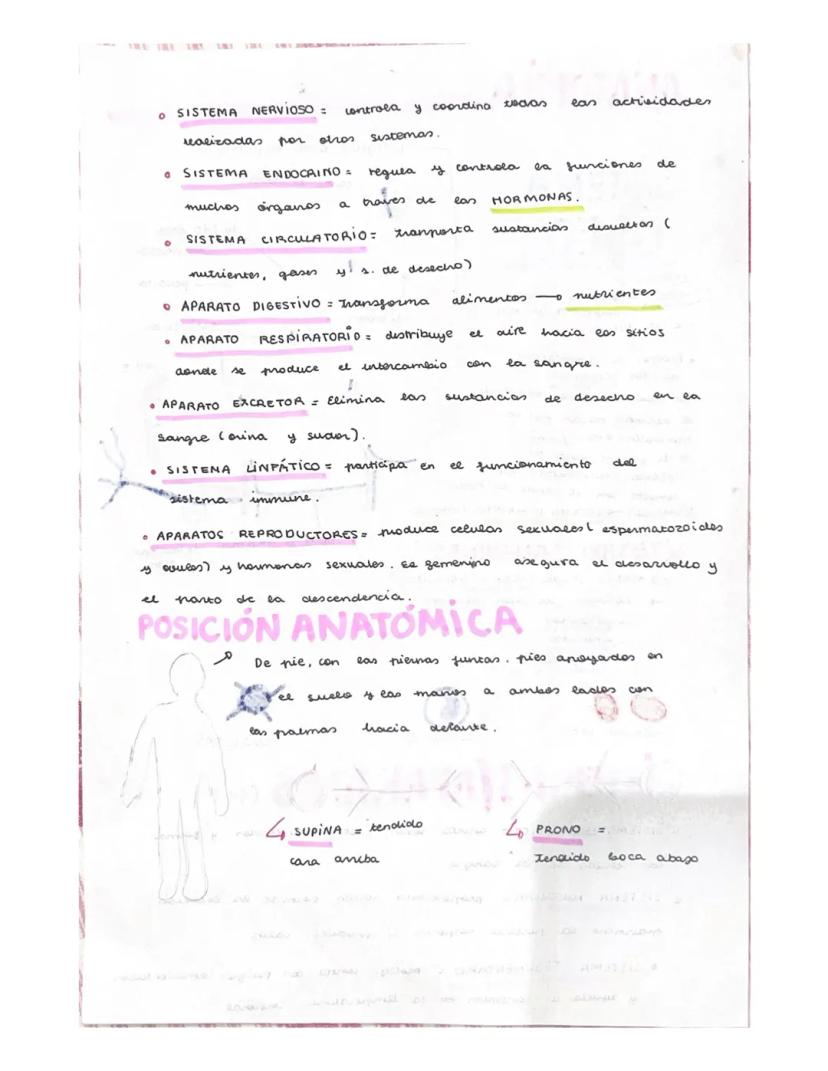 • SISTEMA NERVIOSO = controla y coordina todas las actividades
realizadas por otros sistemas.
• SISTEMA ENDOCRINO = regula y controla la funciones de
muchos órganos a través de las HORMONAS.
• SISTEMA CIRCULATORIO = tranporta sustancias disueltas (
nutrientes, gases y s. de desecho)
• APARATO DIGESTIVO = Transforma alimentos → nutrientes
• APARATO RESPIRATORIO = distribuye el aire hacia los sitios
donde se produce el intercambio con la sangre.
• APARATO EXCRETOR = Elimina las sustancias de desecho en la
sangre (orina y sudor).
• SISTEMA LINFÁTICO = participa en el funcionamiento del
sistema inmune.
• APARATOS REPRODUCTORES = produce celulas sexuales ( espermatozoides
y óvulos) y hormonas sexuales. El femenino asegura el desarrollo y
el parto de la descendencia.
POSICIÓN ANATÓMICA
De pie, con las piernas juntas, pies apoyados en
el suelo y las manos a ambos lados con
las palmas hacia delante.
↳ SUPINA = tendido
cara arriba
↳ PRONO =
Tendido boca abajo